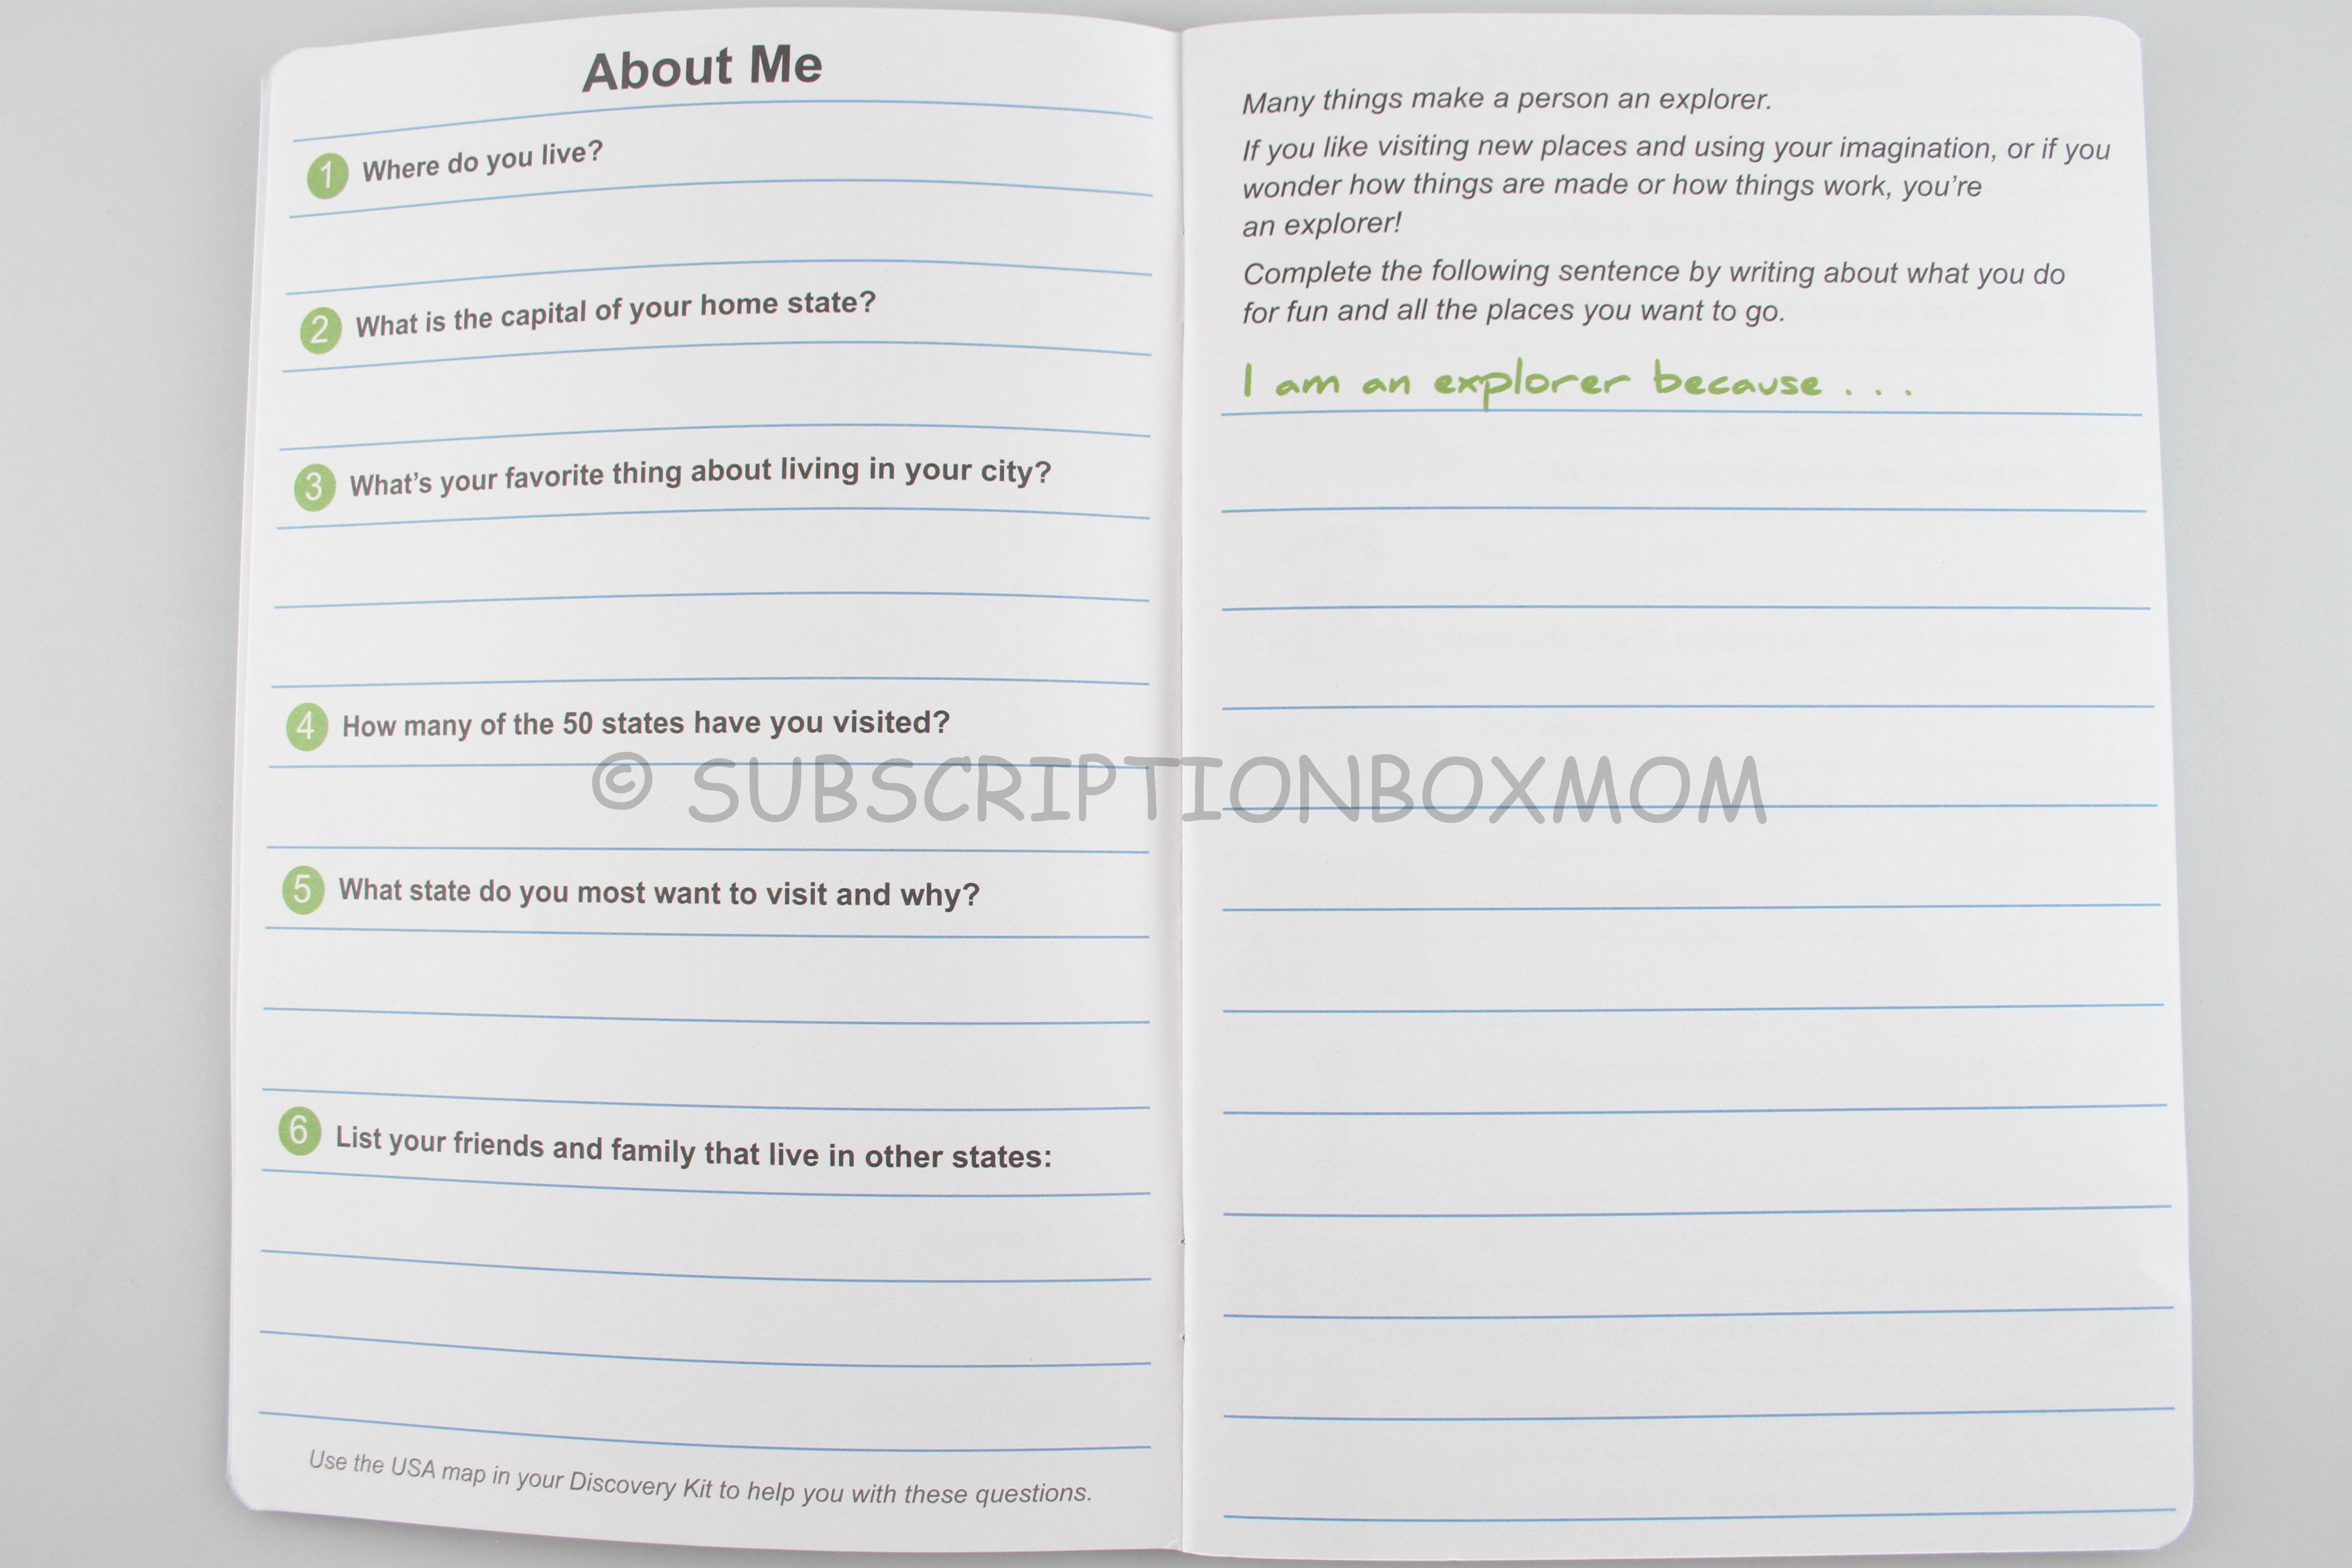 About Me
1 Where do you live?
2 What is the capital of your home state?
3 What's your favorite thing about living in your city?
4 How many of the 50 states have you visited?
5 What state do you most want to visit and why?
6 List your friends and family that live in other states:
Use the USA map in your Discovery Kit to help you with these questions.
Many things make a person an explorer.
If you like visiting new places and using your imagination, or if you
wonder how things are made or how things work, you're
an explorer!
Complete the following sentence by writing about what you do
for fun and all the places you want to go.
I am an explorer because . . .
© SUBSCRIPTIONBOXMOM